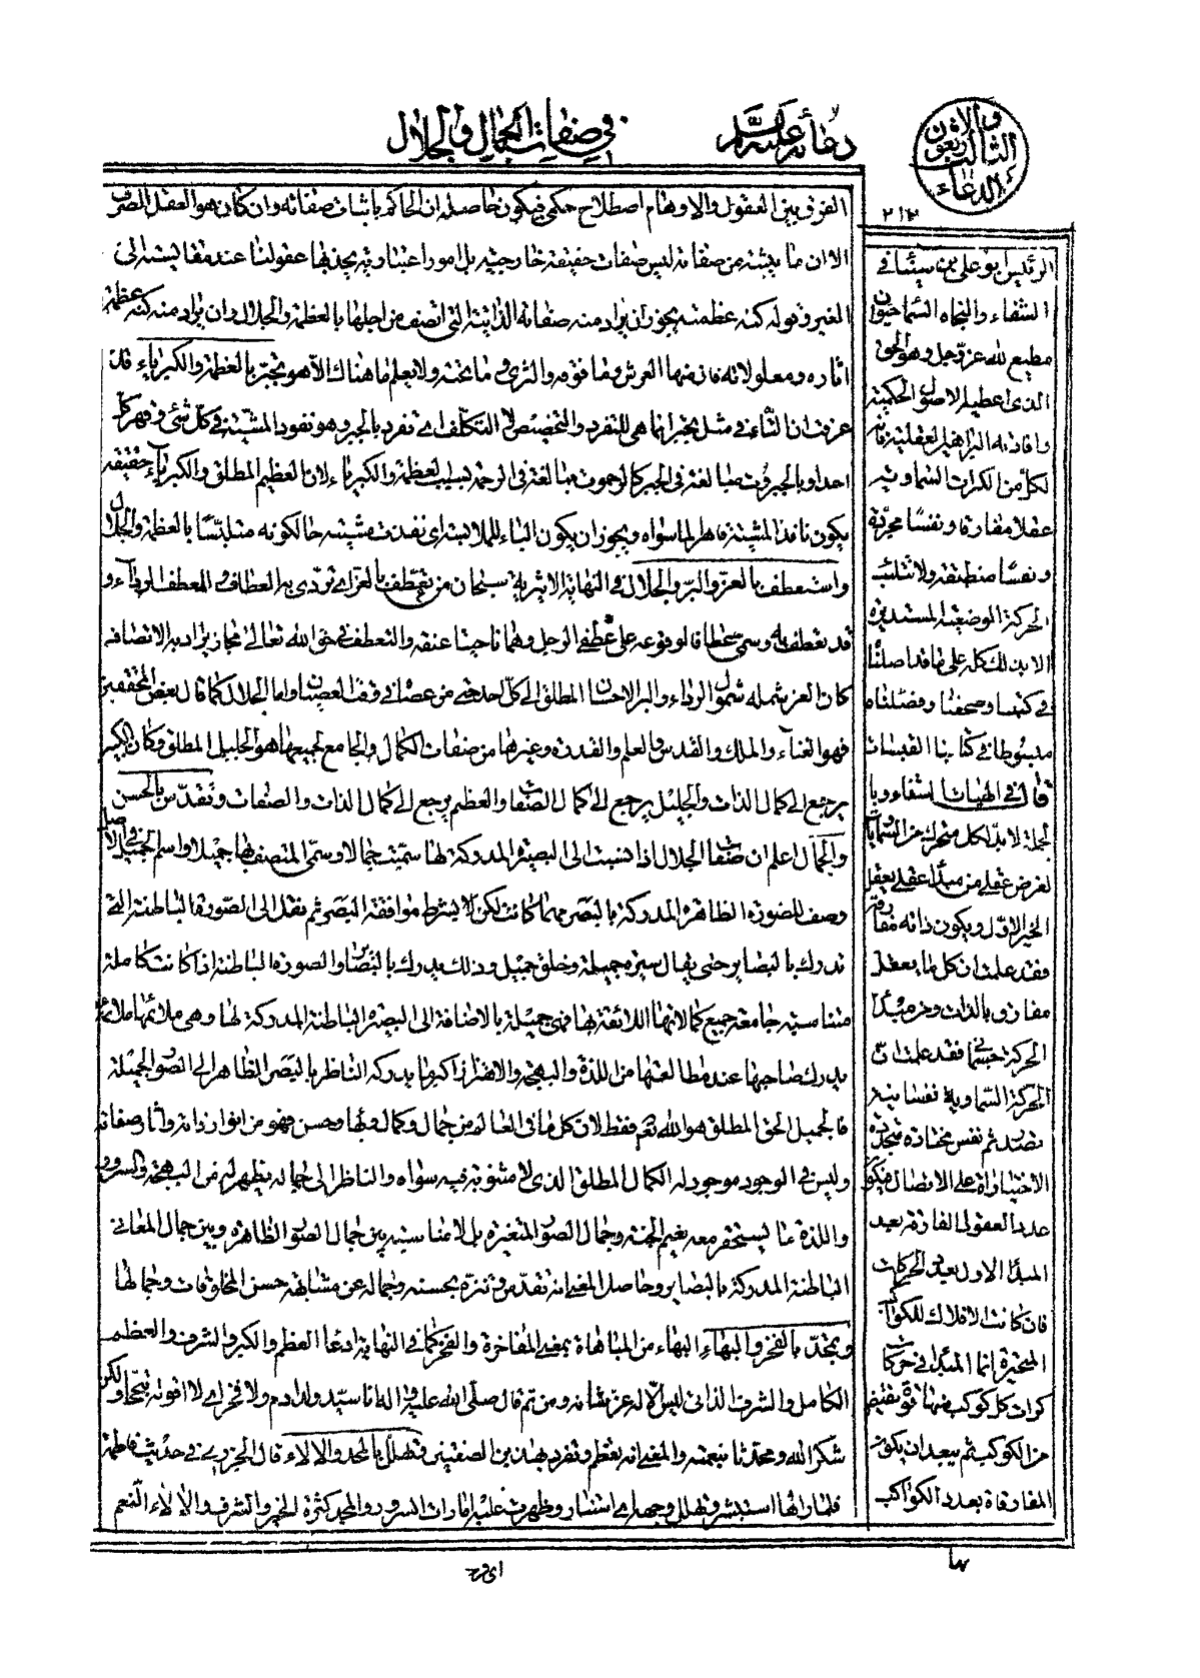 والاربعون
الثالث
الدعاء
دعائه عليه السلام
في صفات الجمال والجلال
٢١٣
الفرق بين العقول والاوهام اصطلاح حكمي فيكون حاصله ان الحاكم باثبات صفاته وان كان هو العقل الصرف
الا ان ما يثبته من صفاته ليس صفات حقيقة خارجية بل امور اعتبارية يجدها عقولنا عند مقايسته الى
الغير وقوله كنه عظمته يجوز ان يراد منه صفاته الذاتية التي اتصف من اجلها بالعظمة والجلال وان يراد منه كنه عظمة
اثاره ومعلولاته فان منها العرش وما فوقه والثرى وما تحته ولا يعلم ما هناك الا هو تجبر بالعظمة والكبرياء قد
عرفت ان التاء في مثل تجبر انما هي للتفرد والتخصص لا التكلف اي تفرد بالجبر وهو نفوذ المشية في كل شئ وقهر كل
احد او بالجبروت مبالغة في الجبر كالرحموت مبالغة في الرحمة بسبب العظمة والكبرياء لان العظيم المطلق والكبرياء حقيقة
يكون نافذ المشية قاهرا لما سواه ويجوز ان يكون الباء للملابسة اي نفذت مشيته حالكونه متلبسا بالعظمة والجلال
واستعطف بالعز والبر والجلال في النهاية الاثيرية سبحان من تعطف بالعز اي تردى به العطاف والمعطف الرداء و
قد تعطف به وسمي عطافا لوقوعه على عطفي الرجل وهما ناحيتا عنقه والتعطف في حق الله تعالى مجاز يراد به الاتصاف
كان العز شمله شمول الرداء والبر الاحسان المطلق الى كل احد حتى من عصاني وقت العصيان واما الجلال كما قال بعض المحققين
فهو الغناء والملك والقدس والعلم والقدرة وغيرها من صفات الكمال والجامع لجميعها هو الجليل المطلق وكان الكبير
يرجع الى كمال الذات والجليل يرجع الى كمال الصفات والعظيم يرجع الى كمال الذات والصفات وتقدس بالحسن
والجمال اعلم ان صفات الجلال اذا نسبت الى البصيرة المدركة لها سميت جمالا وسمي المتصف بها جميلا واسم الجميل في الاصل
وصف للصورة الظاهرة المدركة بالبصر مهما كانت لكن لا بشرط موافقة البصر ثم نقل الى الصورة الباطنة التي
تدرك بالبصاير حتى يقال سيرة جميلة وخلق جميل وذلك يدرك بالبصاير والصورة الباطنة اذا كانت كاملة
متناسبة جامعة جميع كمالاتها اللائقة بها فهي جميلة بالاضافة الى البصيرة الباطنة المدركة لها وهي ملائمتها ملائمة
يدرك صاحبها عند مطالعتها من اللذة والبهجة والاهتزاز اكثر مما يدركه الناظر بالبصر الظاهر الى الصور الجميلة
فالجميل الحق المطلق هو الله تعم فقط لان كل ما في العالم من جمال وكمال وبهاء وحسن فهو من انوار ذاته واثار صفاته
وليس في الوجود موجود له الكمال المطلق الذي لا مثنوية فيه سواه والناظر الى جماله يظهر له من البهجة والسرور
واللذة ما يستحقر معه نعيم الجنة وجمال الصور المتغيرة بل لا مناسبة بين جمال الصور الظاهرة وبين جمال المعاني
الباطنة المدركة بالبصاير وحاصل المعنى انه تقدس وتنزه بحسنه وجماله عن مشابهة حسن المخلوقات وجمالها
وتمجد بالفخر والبهاء البهاء من المباهاة بمعنى المفاخرة والفخر كما في النهاية ادعاء العظم والكبر والشرف والعظم
الكامل والشرف الذاتي ليس الا له عز شانه ومن ثم قال صلى الله عليه واله انا سيد ولد ادم ولا فخر اي لا اقوله تبجحا ولكن
شكرا لله ومحدثا بنعمته والمعنى انه تعظم وتفرد بهذين الصفتين وتهلل بالمجد والالاء قال الجزري في حديث فاطمة
فلما راها استبشر وتهلل وجهه اي استنار وظهرت عليه امارات السرور والمجد كثرة الخير والشرف والالاء النعم
الرئيس بو علي بن سينا في
الشفاء والنجاة السماء حيوان
مطيع لله عز وجل وهو الحق
الذي اعطيه الاصول الحكمية
وافادته البراهين العقلية فان
لكل من الكرات السماوية
عقلا مفارقا ونفسا مجردة
ونفسا منطبعة ولا تتلئب
الحركة الوضعية المستديرة
الا بذلك كله على ما قد اصلنا
في كتبنا وصحفنا وفصلناه
مبسوطا في كتابنا القبسات
قال في الهيات الشفاء وبا
لجملة لا بد لكل متحرك من السماويات
لغرض عقلي من مبدأ عقلي يعقل
الخير الاول ويكون ذاته مفارقة
فقد علمت ان كل ما يعقل
مفارق بالذات ومن مبدأ
الحركة جسماني فقد علمت ان
الحركة السماوية نفسانية
تصدر عن نفس مختارة متجددة
الاختيارات على الاتصال فيكون
عدد العقول المفارقة بعد
المبدأ الاول بعدد الحركات
فان كانت الافلاك للكواكب
المتحيرة انما المبدأ في حركات
كرات كل كوكب منها قوة تفيض
من الكوكب لم يبعد ان يكون
المفارقة بعدد الكواكب
لها
اي فرح